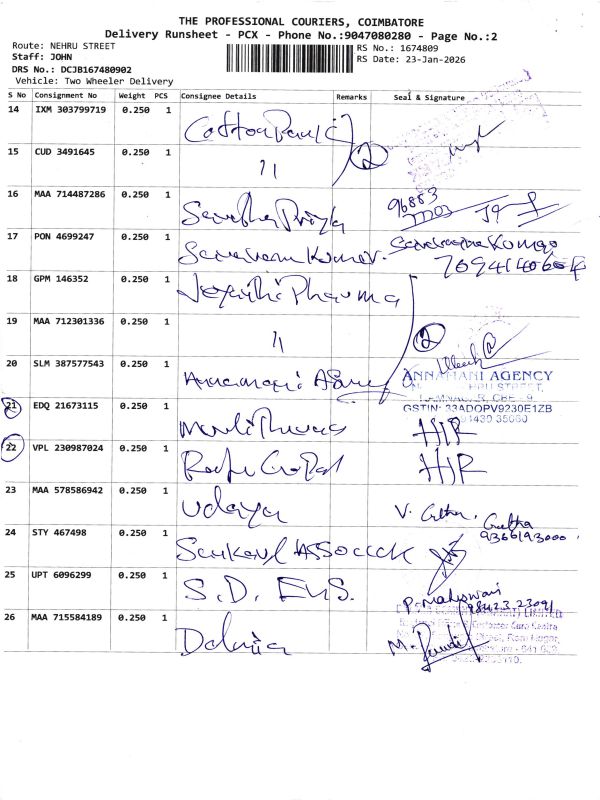 THE PROFESSIONAL COURIERS, COIMBATORE
Delivery Runsheet - PCX - Phone No.:9047080280 - Page No.:2
Route: NEHRU STREET
Staff: JOHN
DRS No.: DCJB167480902
Vehicle: Two Wheeler Delivery
RS No.: 1674809
RS Date: 23-Jan-2026
S No Consignment No Weight PCS Consignee Details Remarks Seal & Signature
14 IXM 303799719 0.250 1
15 CUD 3491645 0.250 1 11 2
16 MAA 714487286 0.250 1 Saratha Priya 96883
17 PON 4699247 0.250 1 Saravana Kumar.
18 GPM 146352 0.250 1 Jeyanthi Pharma
19 MAA 712301336 0.250 1 11 2
20 SLM 387577543 0.250 1 Annamani Agency
ANNAMANI AGENCY
GSTIN: 33ADOPV9230E1ZB
21 EDQ 21673115 0.250 1
22 VPL 230987024 0.250 1 Raja Gopal
23 MAA 578586942 0.250 1 Udaya V. Geetha. Geetha
9366193000
24 STY 467498 0.250 1
25 UPT 6096299 0.250 1 S.D. Eng. P. Maheswari
98423 23091
26 MAA 715584189 0.250 1 Dalmia